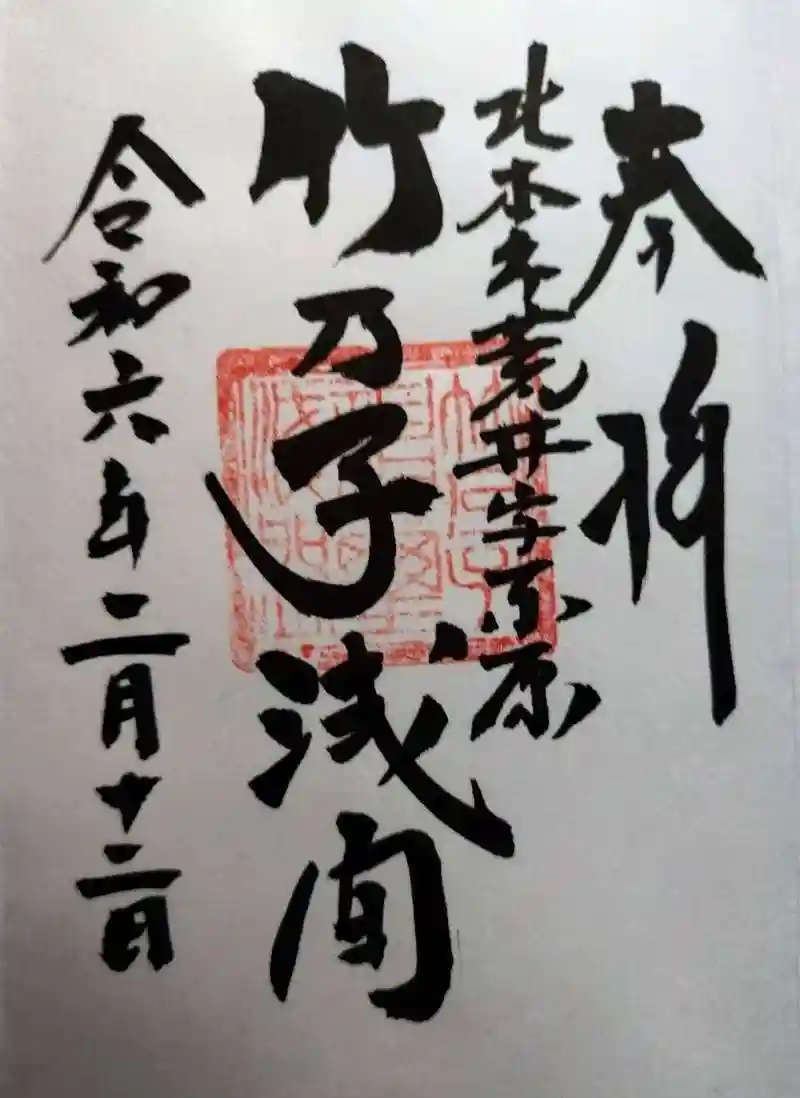 奉拝
北本市荒井字原
竹乃子浅間
令和六年二月十二日